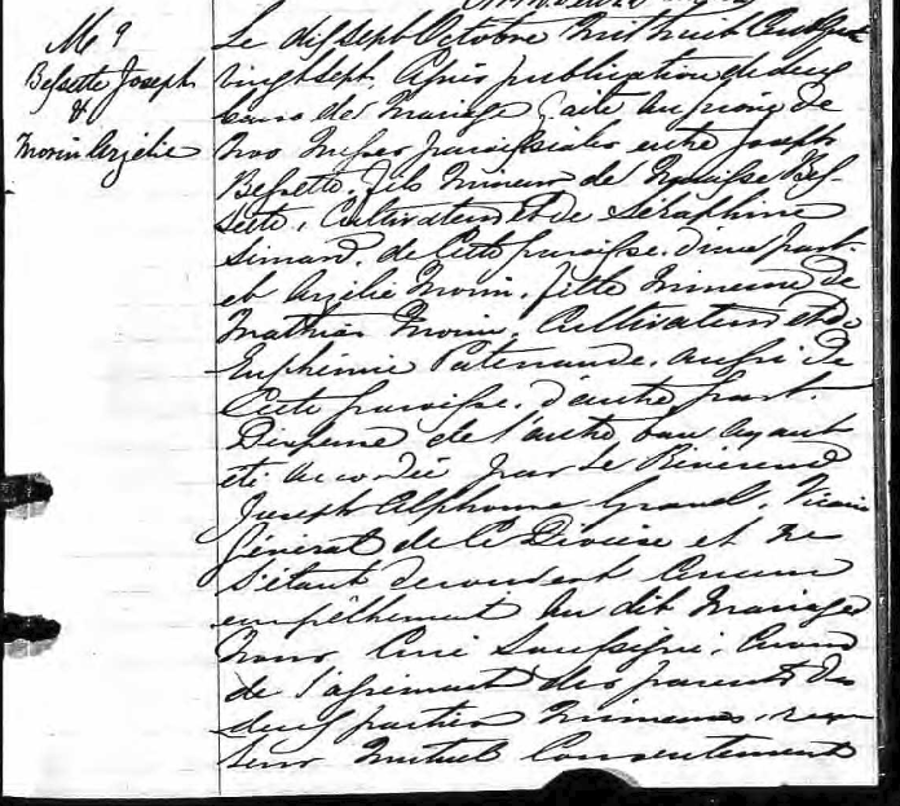 M 9
Bessette Joseph
&
Morin Arzélie
Le dix sept Octobre mil huit cent quatre
vingt sept, après publication de deux
bans de mariage faite au prône de
nos messes paroissiales entre Joseph
Bessette, fils mineur de Bes-
sette, cultivateur et de Séraphine
Simard, de cette paroisse, d'une part,
et Arzélie Morin, fille mineure de
Mathias Morin, cultivateur et de
Euphémie Patenaude, aussi de
cette paroisse, d'autre part.
Dispense de l'autre ban ayant
été accordée par le Révérend
Joseph Alphonse Gravel, Vicaire
Général de ce Diocèse et ne
s'étant découvert aucun
empêchement au dit mariage
Nous Curé Soussigné, avons
de l'agrément des parents des
deux parties mineures, reçu
leur mutuel consentement